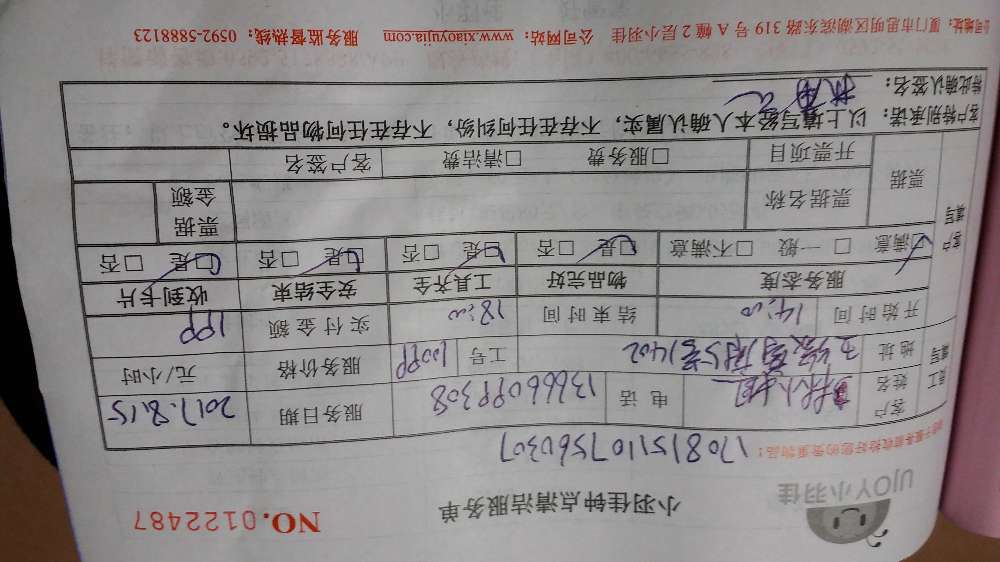 UJOY小羽佳
小羽佳钟点清洁服务单
NO.0122487
请于服务前收拾好您的贵重物品：
1708151107560307
员工填写
客户姓名
小姐
电话
13666099308
服务日期
2017.8.15
地址
402
工号
服务价格
元/小时
开始时间
14:00
结束时间
18:00
实付金额
199
客户填写
服务态度
物品完好
工具齐全
安全结束
收到卡片
□满意 □一般 □不满意
□是 □否
□是 □否
□是 □否
□是 □否
票据
票据名称
票据金额
开票项目
□服务费 □清洁费
客户签名
客户特别承诺：以上填写经本人确认属实，不存在任何纠纷，不存在任何物品损坏。
特此确认签名：
公司地址：厦门市思明区湖滨东路 319 号 A 幢 2 层小羽佳 公司网站：www.xiaoyujia.com 服务监督热线：0592-5888123